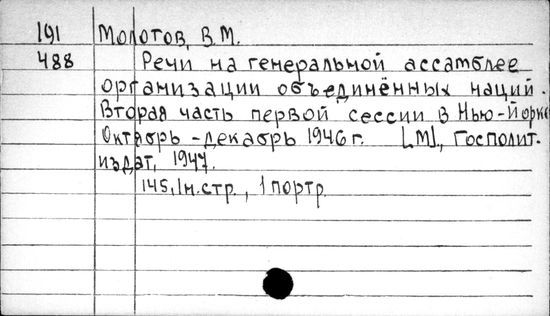 191 Молотов, В.М.
488 Речи на генеральной ассамблее
организации объединённых наций.
Вторая часть первой сессии в Нью-Йорке
Октябрь-декабрь 1946 г. [М], Госполит-
издат, 1947.
145, 1 н.стр., 1 портр.